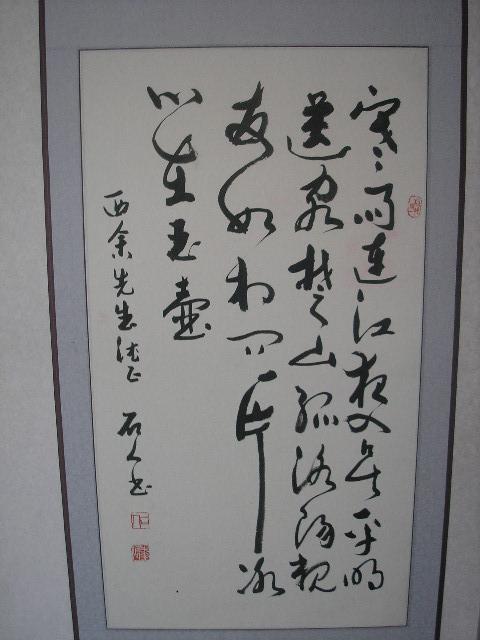 寒雨連江夜入吳平明
送客楚山孤洛陽親
友如相問一片冰
心在玉壺
西余先生法正 石人书